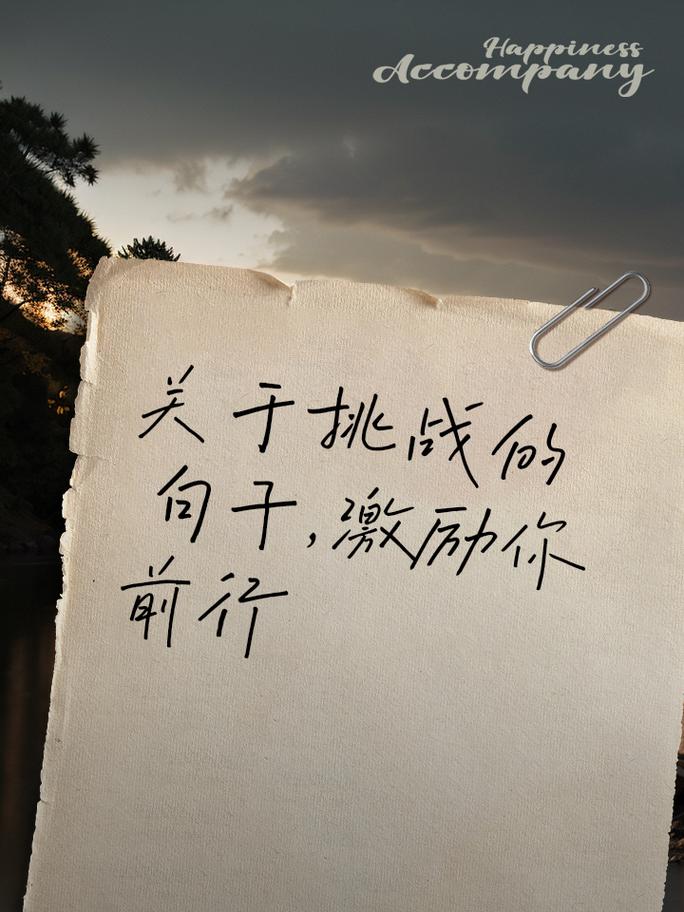 Happiness
Accompany
关于挑战的
句子,激励你
前行